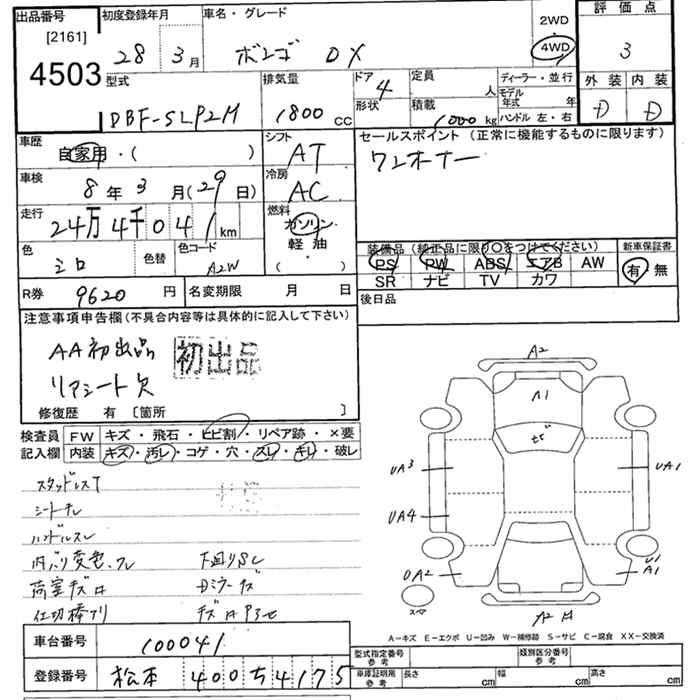 出品番号
[2161]
4503
初度登録年月
28 3月
車名・グレード
ボンゴ DX
2WD
4WD
評価点
3
型式
DBF-SLP2M
排気量
1800 cc
ドア
4
形状
定員
人
積載
1000 kg
ディーラー・並行
モデル年式 年
ハンドル 左・右
外装
内装
D
D
車歴
自家用・( )
シフト
AT
セールスポイント(正常に機能するものに限ります)
ワンオーナー
車検
8年 3月(29日)
冷房
AC
走行
24万4千041km
燃料
ガソリン
軽油
( )
色
シロ
色替
色コード
A2W
装備品(純正品に限り○をつけてください)
PS PW ABS エアB AW
SR ナビ TV カワ
新車保証書
有・無
R券 9620円
名変期限 月 日
後日品
注意事項申告欄(不具合内容等は具体的に記入して下さい)
AA初出品
初出品
リアシート欠
修復歴 有〔箇所 〕
検査員記入欄
FW キズ・飛石・ヒビ割・リペア跡・×要
内装 キズ・汚レ・コゲ・穴・スレ・キレ・破レ
スタッドレスT
シートナレ
ハンドルスレ
内バリ変色、スレ
下回りSC
荷室キズ
Dミラーキズ
A2
A1
UA3
UA1
UA4
UA2
U1
A1
スペア
A-キズ E-エクボ U-凹み W-補修跡 S-サビ C-腐食 XX-交換済
車台番号
100041
登録番号
松本 400 ち 4175
型式指定番号
参考
類別区分番号
参考
車庫証明用
参考
長さ cm
幅 cm
高さ cm